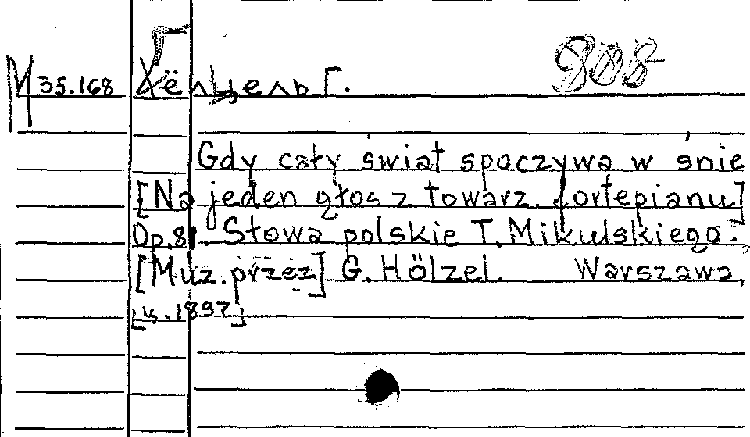 808
М 35.168 Хёльцель Г.
Gdy cały świat spoczywa w śnie
[Na jeden głos z towarz. fortepianu]
Op.81. Słowa polskie T. Mikulskiego.
[Muz. przez] G. Hölzel. Warszawa,
1897]